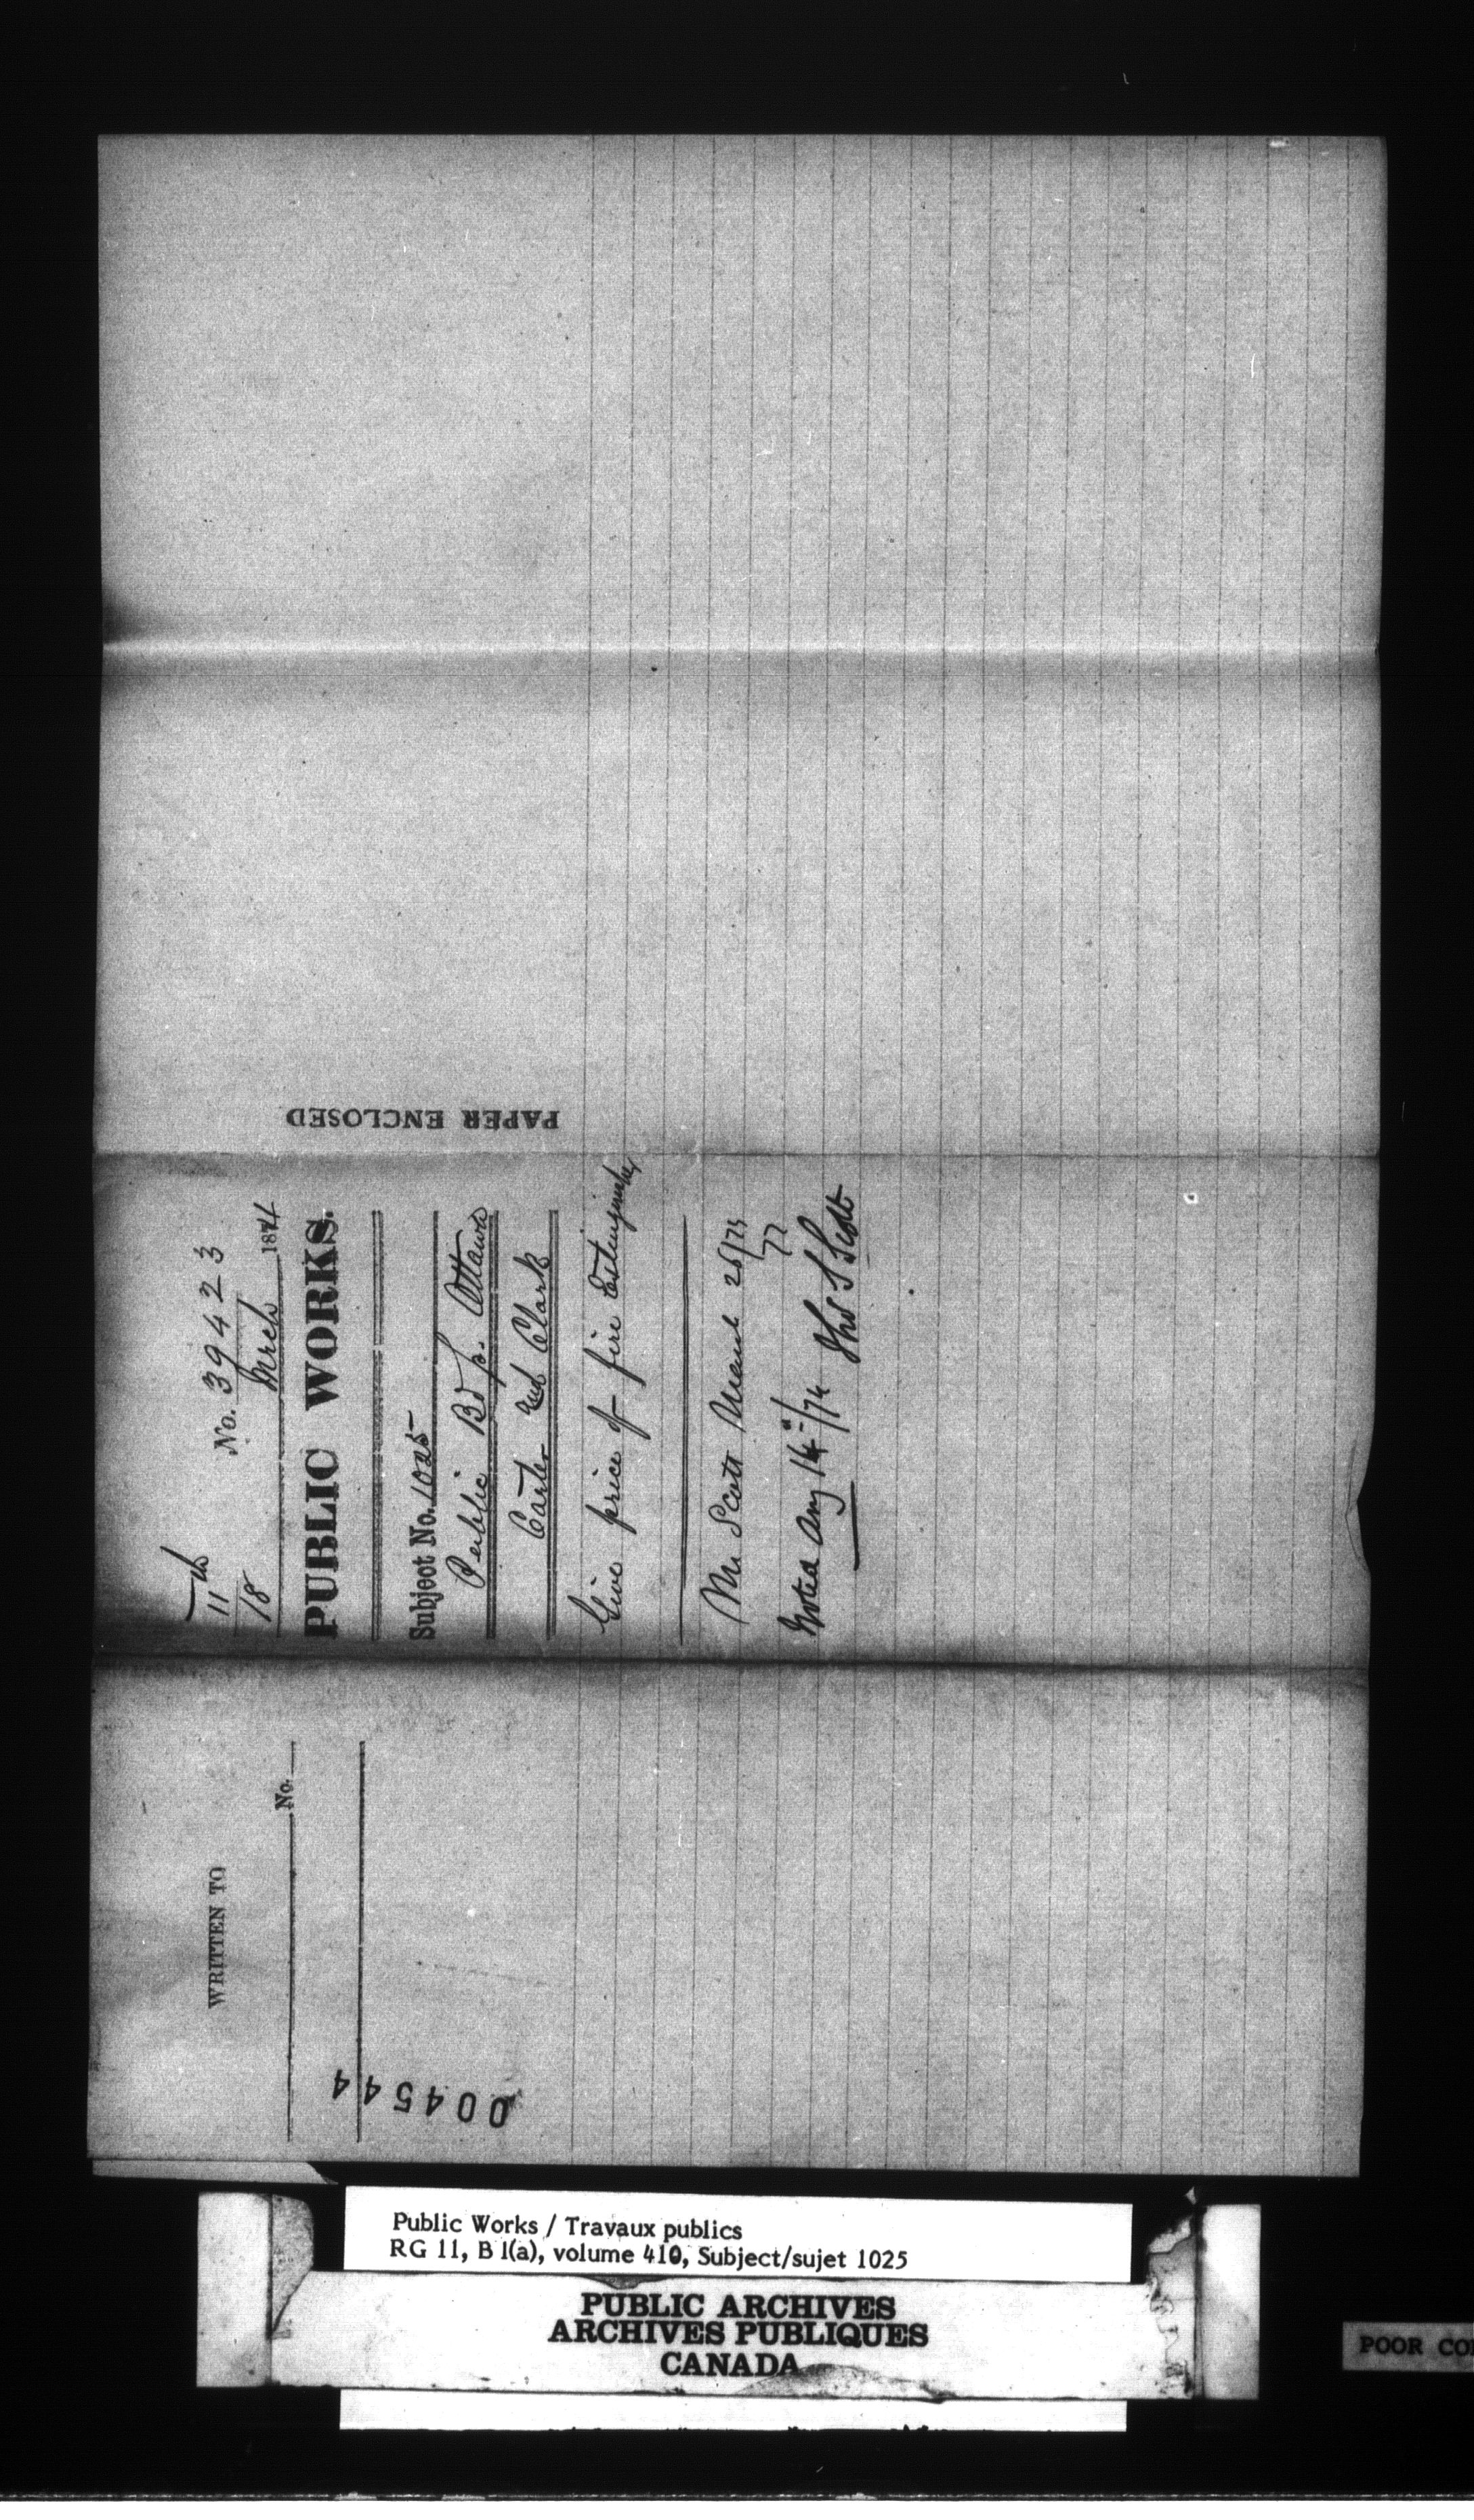 11th
No. 39423
18 Mrch 1874
PUBLIC WORKS.
Subject No. 1025
Public Bdgs. Ottawa
Carter and Clark
Give price of fire Extinguisher
Mr Scott
Noted Aug 14/74 Thos S Scott
PAPER ENCLOSED
WRITTEN TO
No.
004544
Public Works / Travaux publics
RG 11, B 1(a), volume 410, Subject/sujet 1025
PUBLIC ARCHIVES
ARCHIVES PUBLIQUES
CANADA
POOR CO